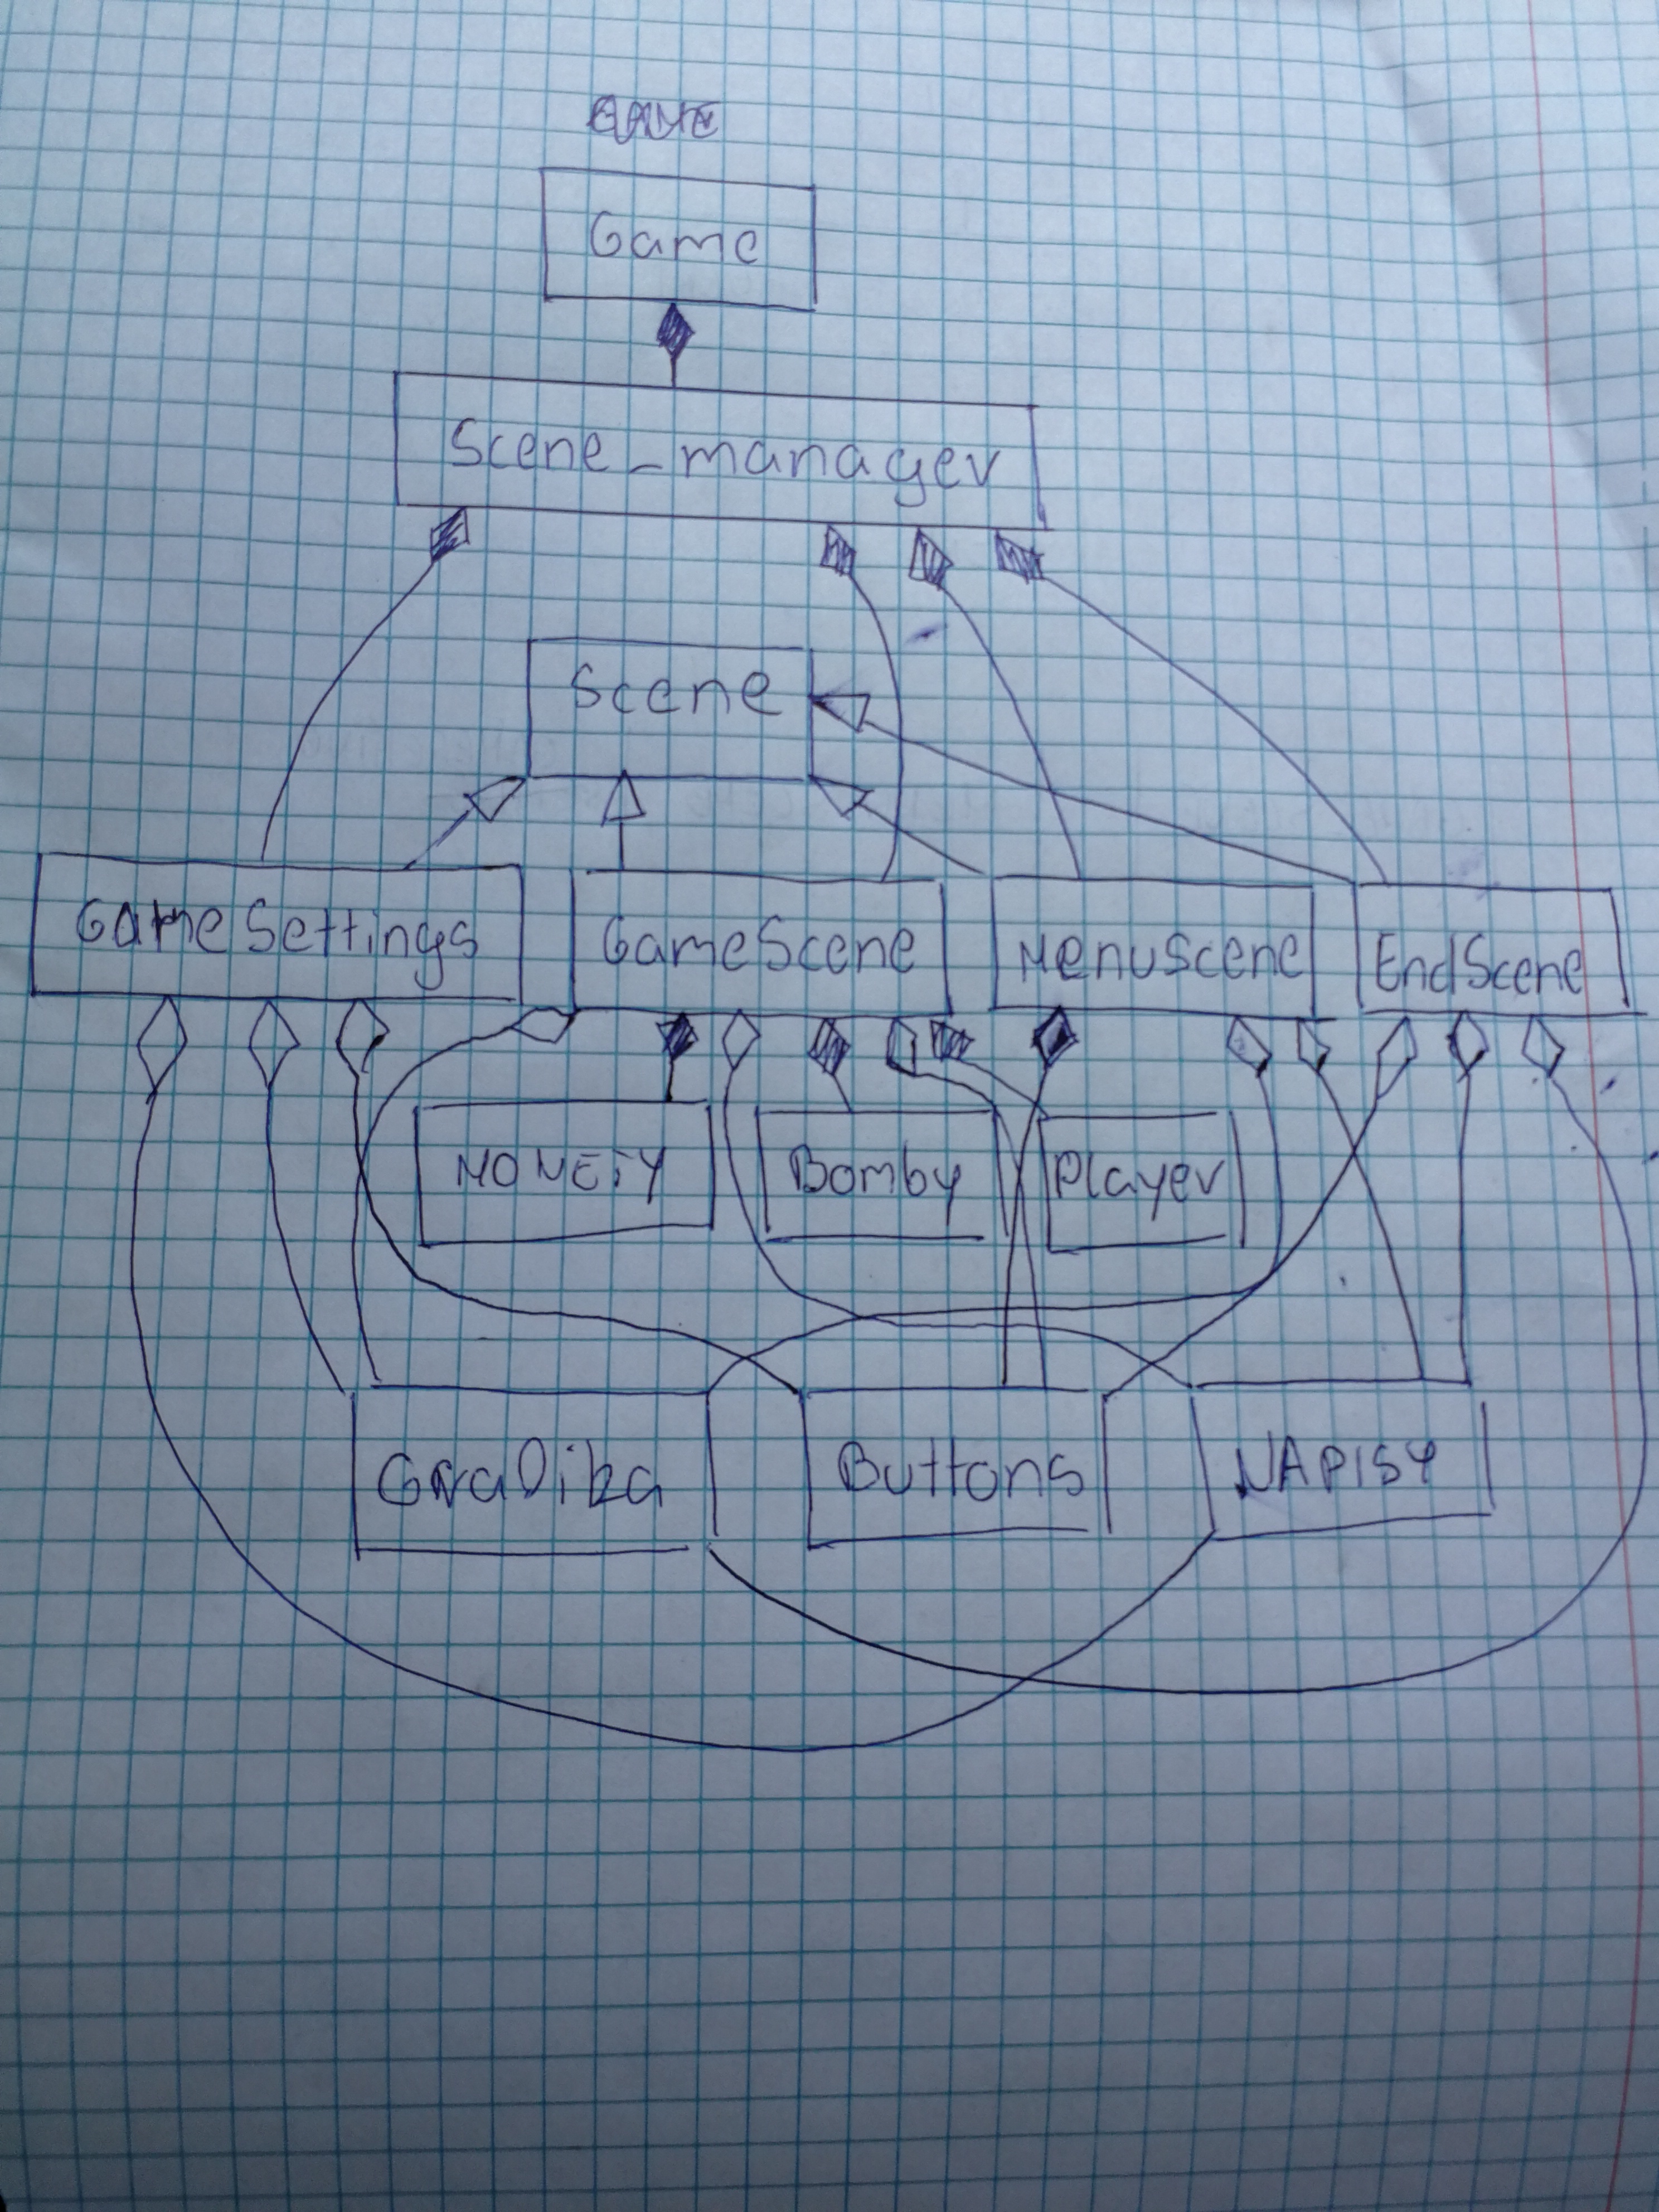 GAME
Game
Scene_manager
Scene
GameSettings
GameScene
MenuScene
EndScene
MONETY
Bomby
Player
Grafika
Buttons
NAPISY